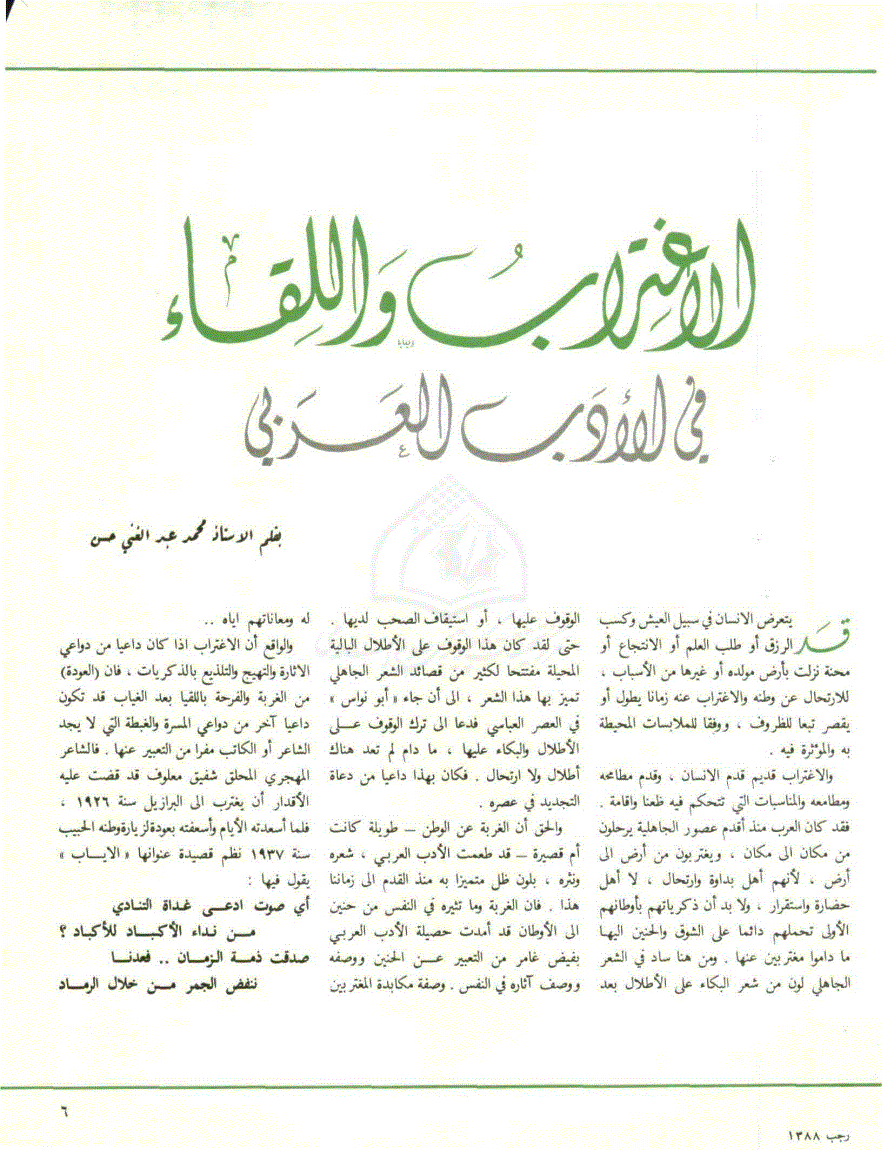 الاغترابُ وَاللِقاء
في الأدَب العَربي
بقلم الاستاذ محمد عبد الغني حسن
قَد يتعرض الانسان في سبيل العيش وكسب
الرزق أو طلب العلم أو الانتجاع أو
محنة نزلت بأرض مولده أو غيرها من الأسباب ،
للارتحال عن وطنه والاغتراب عنه زمانا يطول أو
يقصر تبعا للظروف ، ووفقا للملابسات المحيطة
به والمؤثرة فيه .
والاغتراب قديم قدم الانسان ، وقدم مطامحه
ومطامعه والمناسبات التي تتحكم فيه ظعنا واقامة .
فقد كان العرب منذ أقدم عصور الجاهلية يرحلون
من مكان الى مكان ، ويغتربون من أرض الى
أرض ، لأنهم أهل بداوة وارتحال ، لا أهل
حضارة واستقرار ، ولا بد أن ذكرياتهم بأوطانهم
الأولى تحملهم دائما على الشوق والحنين اليها
ما داموا مغتربين عنها . ومن هنا ساد في الشعر
الجاهلي لون من شعر البكاء على الأطلال بعد
الوقوف عليها ، أو استيقاف الصحب لديها .
حتى لقد كان هذا الوقوف على الأطلال البالية
المحيلة مفتتحا لكثير من قصائد الشعر الجاهلي
تميز بها هذا الشعر ، الى أن جاء « أبو نواس »
في العصر العباسي فدعا الى ترك الوقوف على
الأطلال والبكاء عليها ، ما دام لم تعد هناك
أطلال ولا ارتحال . فكان بهذا داعيا من دعاة
التجديد في عصره .
والحق أن الغربة عن الوطن – طويلة كانت
أم قصيرة – قد طعمت الأدب العربي ، شعره
ونثره ، بلون ظل متميزا به منذ القدم الى زماننا
هذا . فان الغربة وما تثيره في النفس من حنين
الى الأوطان قد أمدت حصيلة الأدب العربي
بفيض غامر من التعبير عن الحنين ووصفه
ووصف آثاره في النفس . وصفة مكابدة المغتربين
له ومعاناتهم اياه ..
والواقع أن الاغتراب اذا كان داعيا من دواعي
الاثارة والتهيج والتلذيع بالذكريات ، فان (العودة)
من الغربة والفرحة باللقيا بعد الغياب قد تكون
داعيا آخر من دواعي المسرة والغبطة التي لا يجد
الشاعر أو الكاتب مفرا من التعبير عنها . فالشاعر
المهجري المحلق شفيق معلوف قد قضت عليه
الأقدار أن يغترب الى البرازيل سنة ١٩٢٦ ،
فلما أسعدته الأيام وأسعفته بعودة لزيارة وطنه الحبيب
سنة ١٩٣٧ نظم قصيدة عنوانها « الاياب »
يقول فيها :
أي صوت ادعى غداة التنادي
من نداء الأكباد للأكباد ؟
صدقت ذمة الزمان .. فعدنا
ننفض الجمر من خلال الرماد
٦
رجب ١٣٨٨